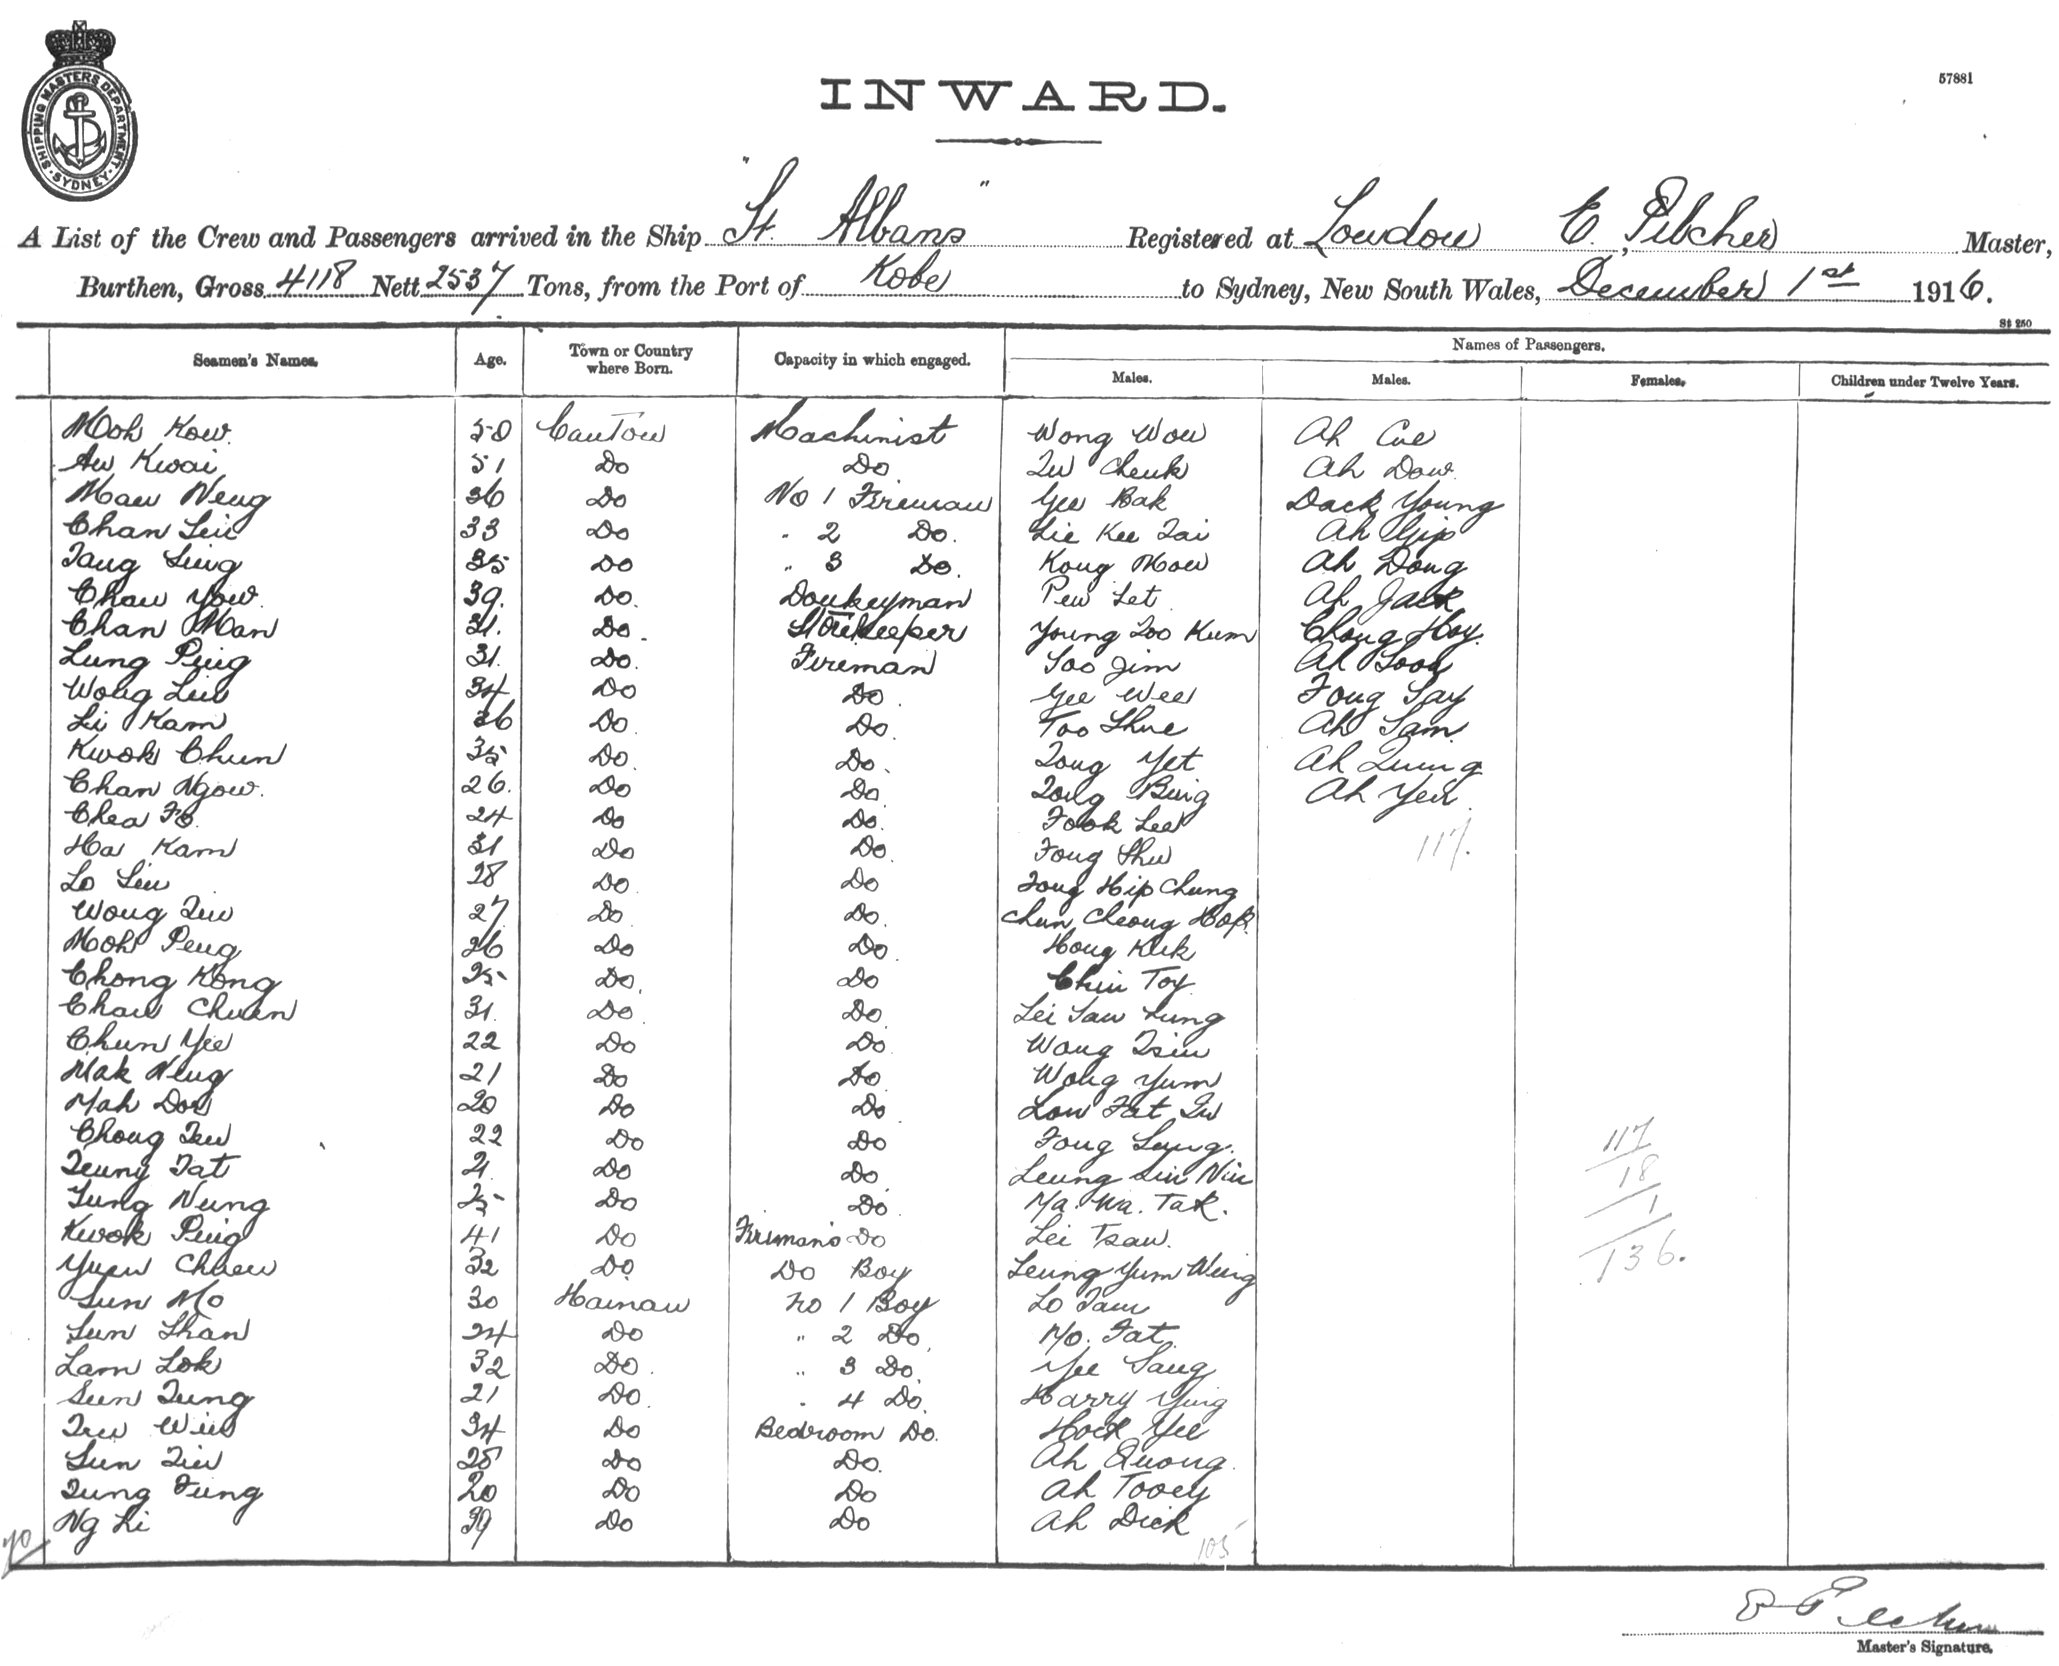 SHIPPING MASTERS DEPARTMENT
SYDNEY
INWARD.
57881
A List of the Crew and Passengers arrived in the Ship "St. Albans" Registered at London E. Pilcher Master,
Burthen, Gross 4118 Nett 2537 Tons, from the Port of Kobe to Sydney, New South Wales, December 1st 1916.
St 250
Seamen's Names. Age. Town or Country where Born. Capacity in which engaged. Names of Passengers.
Males. Males. Females. Children under Twelve Years.
Moh Kow. 50 Canton Machinist Wong Wou Ah Cue
Au Kwai 51 Do Do Cheuk Ah Dow
Man Neng 36 Do No 1 Fireman Yee Bak Dack Young
Chan Lin 33 Do " 2 Do. Lie Kee Tai Ah Yip
Tang Sing 35 Do " 3 Do. Kong Mow Ah Dong
Chan Yow. 39. Do. Donkeyman Pew Let Ah Jack
Chan Man 31. Do. Storekeeper Young Zoo Kum Chong Hoy.
Lung Ping 31. Do. Fireman Soo Jim Ah Soon
Wong Lin 34 Do Do. Yee Wee Fong Say
Li Kam 36 Do. Do. Too Shue Ah Sam
Kwok Chun 35 Do. Do. Tong Yet Ah Quing
Chan Ngow. 26. Do Do Tong Bing Ah Yen
Chea Fo. 24 Do Do. Fook Lee
Ha Kam 31 Do Do. Fong Shu 117.
Lo Lin 28 Do Do Fong Hip Chung
Wong 27 Do Do. Chun Cheong Hop.
Moh Peng 26 Do Do Hong Kuk
Chong Kong 25 Do. Do Chin Toy
Chan Chuan 31. Do. Do Lei Sau Fung
Chun Yee 22 Do Do Wong Tsin
Mak Neng 21 Do Do Wong Yum
Mah Don 20 Do Do Low Fat
Chong 22 Do Do Fong Sang. 117
Teung Tat 21. Do Do Leung Sin Nin 18
Tung Neung 25 Do Do Ma. Wa. Tak. 1
Kwok Ping 41 Do Fireman's Do Lei Tsau. 136.
Yuen Chuen 32 Do. Do Boy Leung Yum Wing
Sun Mo 30 Hainan No 1 Boy Lo Tam
Sun Shan 24 Do " 2 Do. Mo. Fat
Lam Lok 32 Do. " 3 Do. Yee Sang
Sun Tung 21 Do. " 4 Do. Harry Ying
34 Do Bedroom Do. Hock Yee
Sun 28 Do Do. Ah Quong.
Tung Fung 20 Do Do Ah Tooey
Ng Li 39 Do Do Ah Dick
70 105
Master's Signature.